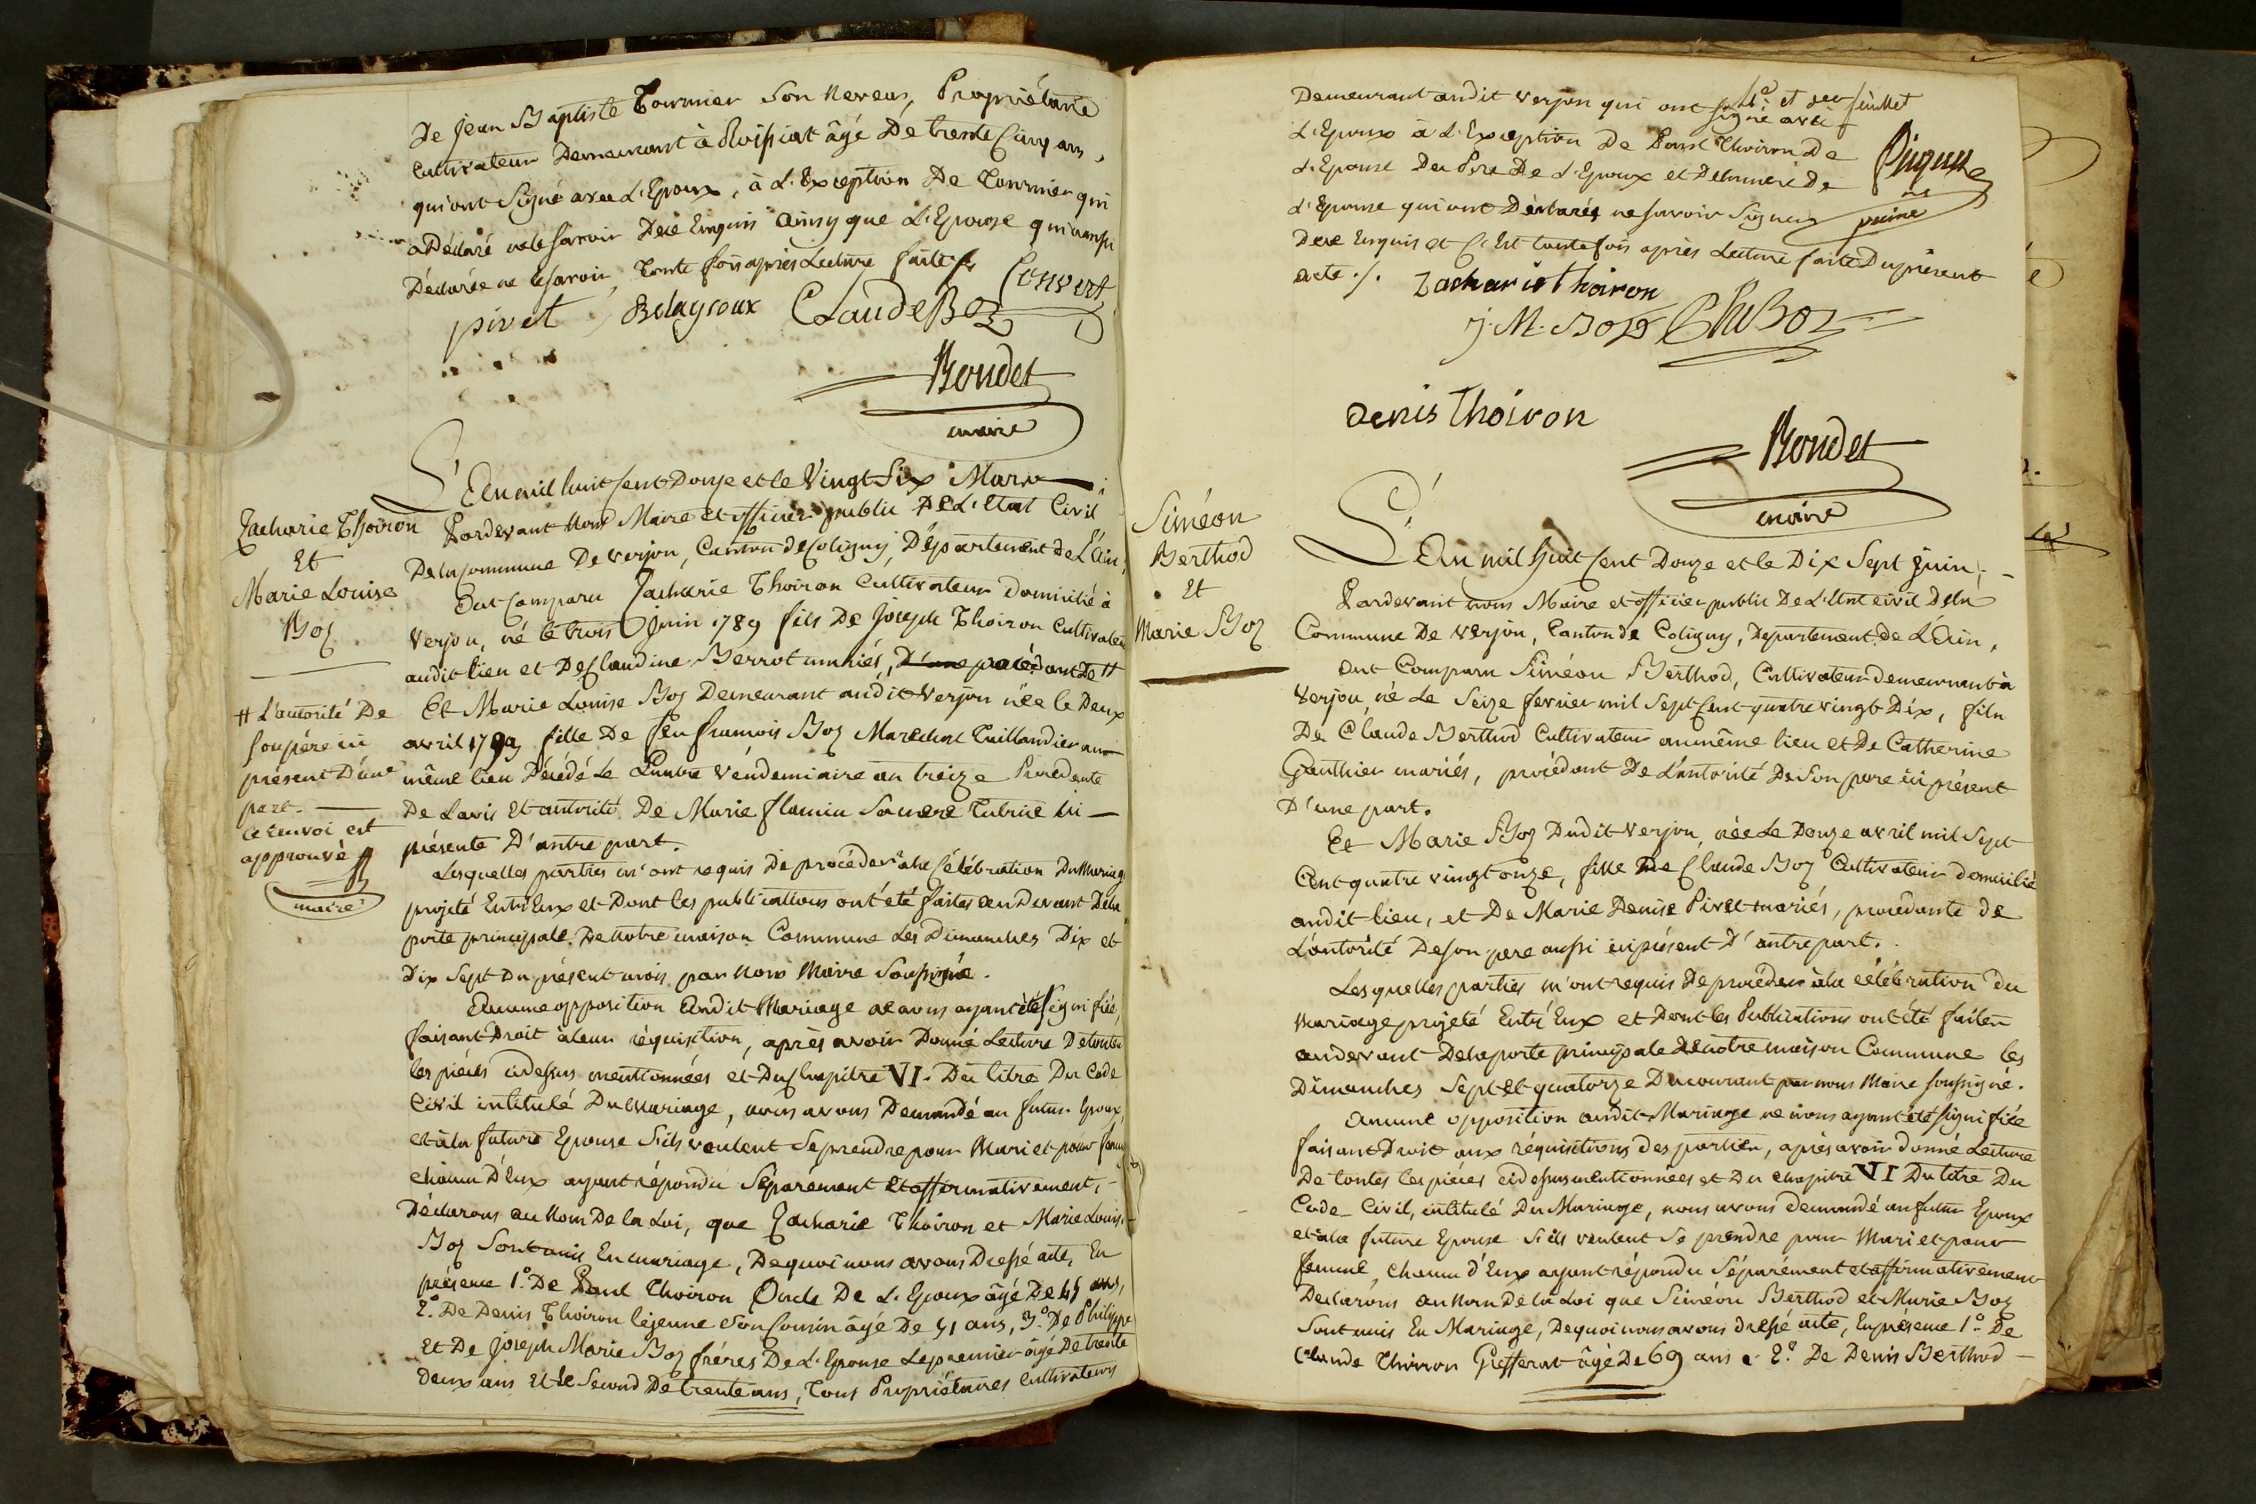 De Jean Baptiste Tournier son neveu, Propriétaire
Cultivateur Demeurant à Roissiat âgé De trente Cinq ans,
qui ont Signé avec L'Epoux, à L'Exception De Tournier qui
a Déclaré ne le savoir De ce Enquis ainsy que L'Epouse qui aussi
Déclarée ne le savoir, toute fois après Lecture faite
Convert
pivet Belaysoux Claude Boz
Bondet
maire
Zacharie Thoiron
Et
Marie Louise
Boz
L'An mil huit Cent Douze et le Vingt Six Mars
Pardevant Nous Maire et officier public De L'Etat Civil
De la Commune De Verjon, Canton de Coligny, Département de L'Ain,
Ont Comparu Zacharie Thoiron Cultivateur Domicilié à
Verjon, né le trois Juin 1789 fils De Joseph Thoiron Cultivateur
audit lieu et De Claudine Berrot mariés, D'une procédant De #
Et Marie Louise Boz Demeurant audit Verjon née le Deux
avril 1789 fille De feu francois Boz Maréchal Taillandier au
même lieu Décédé Le Quatre Vendemiaire an treize Procédente
De L'avis Et autorité De Marie flamin Sa mere Tutrice ici
présente D'autre part.
# L'autorité De
son père ici
présent D'une
part.
le renvoi est
approuvé
maire
Lesquelles parties m'ont requis De procéder à la Célébration Du Mariage
projeté Entr'Eux et Dont les publications ont été faites au Devant De la
porte principale De notre maison Commune Les Dimanches Dix et
Dix Sept Du présent mois par Nous Maire Soussigné.
Aucune opposition audit Mariage ne nous ayant été Signifiée,
faisant Droit à leur réquisition, après avoir Donné Lecture De toutes
les pièces cidessus mentionnées et Du Chapitre VI. Du titre Du Code
Civil intitulé Du Mariage, nous avons Demandé au futur Epoux,
et à la future Epouse S'ils veulent Se prendre pour Mari et pour femme
chacun D'Eux ayant répondu Séparément et affirmativement,
Déclarons au Nom De la Loi, que Zacharie Thoiron et Marie Louise
Boz Sont unis En mariage, De quoi nous avons Dressé acte, En
présence 1.° De Paul Thoiron Oncle De L'Epoux âgé De 45 ans,
2.° De Denis Thoiron le jeune Son Cousin âgé De 51 ans, 3.° De Philippe
Et De Joseph Marie Boz frères De L'Epouse Le premier âgé De trente
Deux ans Et Le Second De trente ans, Tous Propriétaires Cultivateurs
Demeurant audit Verjon qui ont Signé avec
L'Epoux à L'Exception De Paul Thoiron De
L'Epouse Du Père De L'Epoux et De la mere De
L'Epouse qui ont Déclarés ne savoir Signer
De ce Enquis et C'Est toute fois après Lecture faite Du présent
acte ./.
Zacharie Thoiron
J. M. Boz Ph Boz
Denis Thoiron
Bondet
maire
Siméon
Berthod
Et
Marie Boz
L'An mil huit Cent Douze et le Dix Sept Juin,
Pardevant nous Maire et officier public De L'Etat civil De la
Commune De Verjon, Canton de Coligny, Département de L'Ain,
Ont Comparu Siméon Berthod, Cultivateur demeurant à
Verjon, né Le Seize fevrier mil Sept Cent quatre vingt Dix, fils
De Claude Berthod Cultivateur au même lieu et De Catherine
Gauthier mariés, procédant De L'autorité De Son pere ici présent
D'une part.
Et Marie Boz Dudit Verjon, née Le Douze avril mil Sept
Cent quatre vingt onze, fille De Claude Boz Cultivateur domicilié
audit lieu, et De Marie Denise Pivet mariés, procédante de
L'autorité De son pere aussi ici présent D'autre part.
Lesquelles parties m'ont requis De procéder à la célébration du
Mariage projeté Entr'Eux et Dont les Publications ont été faites
au devant De la porte principale De notre maison Commune les
Dimanches Sept et quatorze Du courant par nous Maire soussigné.
Aucune opposition audit Mariage ne nous ayant été Signifiée
faisant Droit aux réquisitions des parties, après avoir donné Lecture
De toutes les pièces cidessus mentionnées et Du chapitre VI Du titre Du
Code Civil, intitulé Du Mariage, nous avons demandé au futur Epoux
et à la future Epouse S'ils veulent Se prendre pour Mari et pour
femme, chacun d'Eux ayant répondu Séparément et affirmativement
Déclarons au Nom De la Loi que Siméon Berthod et Marie Boz
Sont unis En Mariage, De quoi nous avons dressé acte, En présence 1.° De
Claude Thoiron Gefferat âgé De 69 ans 2.° De Denis Berthod